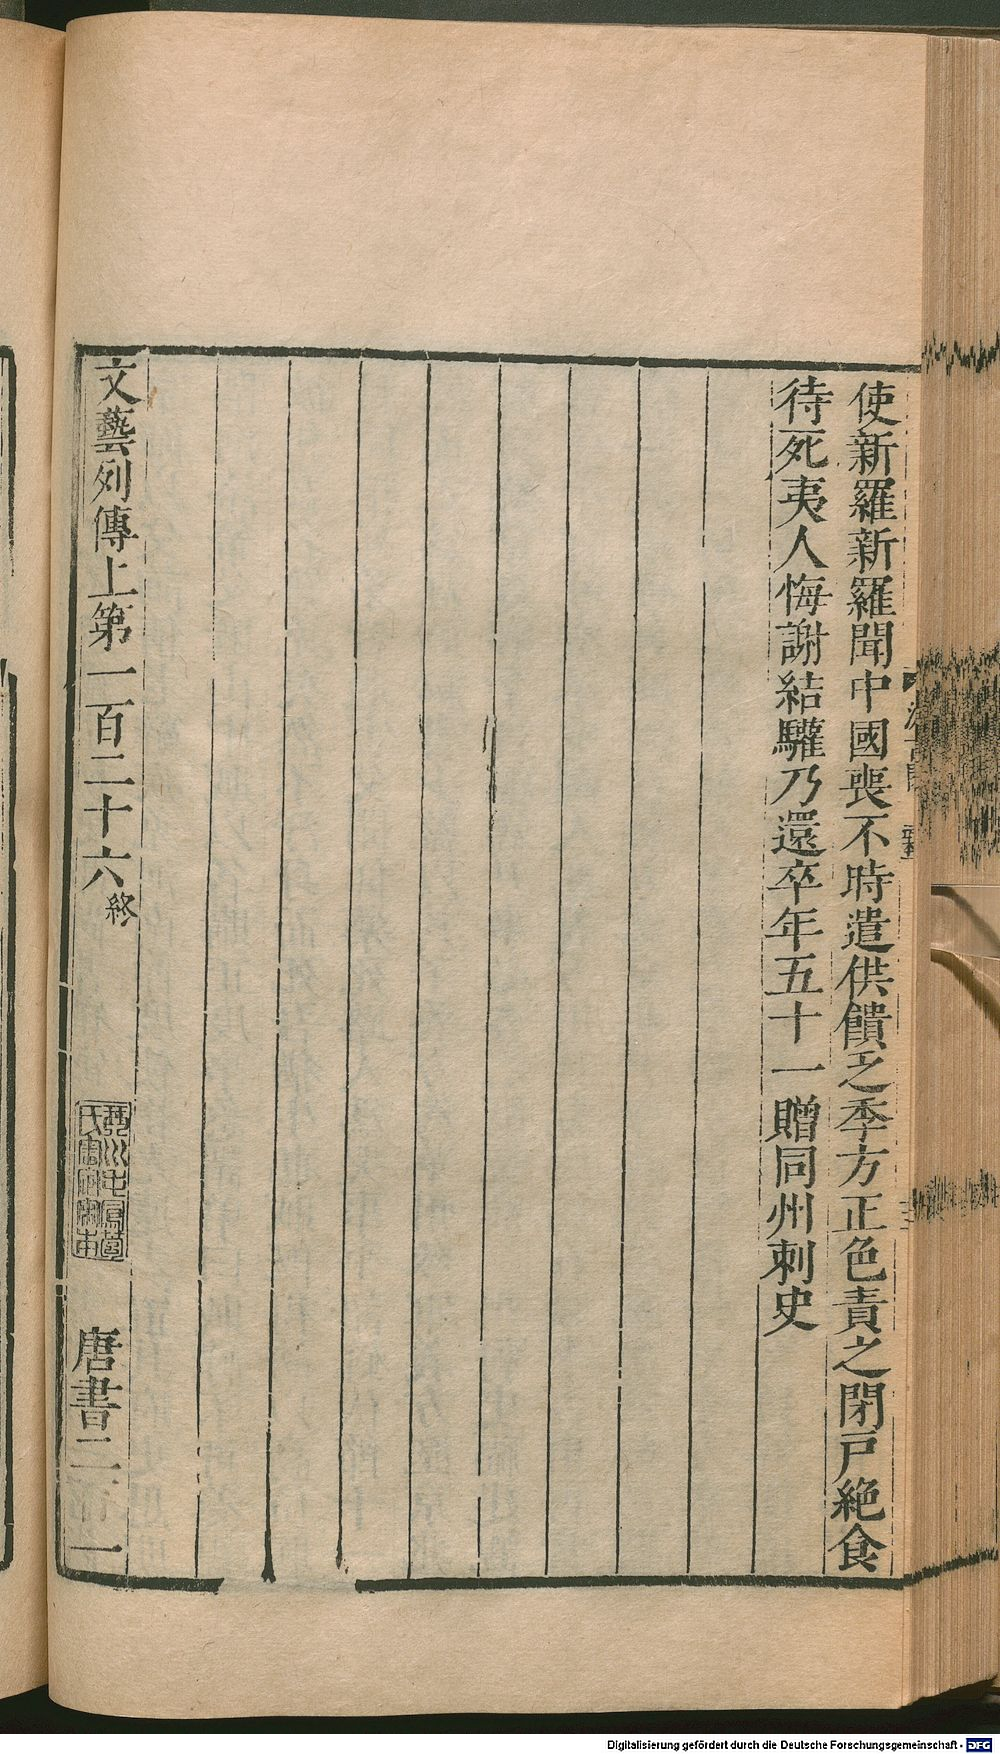 使新羅新羅聞中國喪不時遣供饋乏季方正色責之閉戸絶食
待死夷人悔謝結驩乃還卒年五十一贈同州刺史
文藝列傳上第一百二十六終
唐書二百一
Digitalisierung gefördert durch die Deutsche Forschungsgemeinschaft - DFG